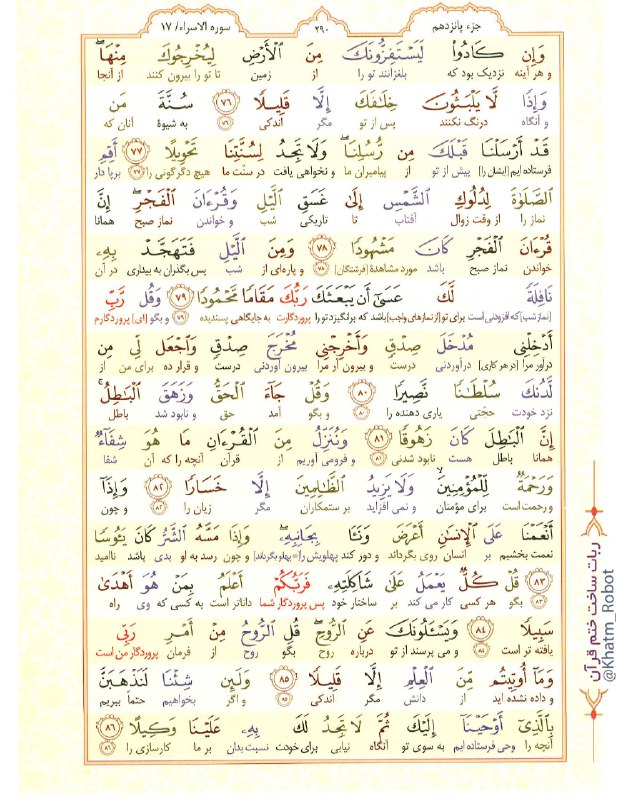 جزء پانزدهم ۲۹۰ سوره الاسراء/ ۱۷
وَإِن كَادُوا لَيَسْتَفِزُّونَكَ مِنَ الْأَرْضِ لِيُخْرِجُوكَ مِنْهَا ۖ
و هر آینه نزدیک بود که بلغزانند تو را از زمین تا تو را بیرون کنند از آنجا
وَإِذًا لَّا يَلْبَثُونَ خِلَٰفَكَ إِلَّا قَلِيلًا ٧٦ سُنَّةَ مَن
و آنگاه درنگ نکنند پس از تو مگر اندکی ۷۶ به شیوهٔ آنان که
قَدْ أَرْسَلْنَا قَبْلَكَ مِن رُّسُلِنَا ۖ وَلَا تَجِدُ لِسُنَّتِنَا تَحْوِيلًا ٧٧ أَقِمِ
فرستاده ایم [ایشان را] پیش از تو از پیامبران ما و نخواهی یافت در سنّت ما هیچ دگرگونی را ۷۷ برپا دار
الصَّلَوٰةَ لِدُلُوكِ الشَّمْسِ إِلَىٰ غَسَقِ الَّيْلِ وَقُرْءَانَ الْفَجْرِ ۖ إِنَّ
نماز را از وقت زوال آفتاب تا تاریکی شب و خواندن نماز صبح همانا
قُرْءَانَ الْفَجْرِ كَانَ مَشْهُودًا ٧٨ وَمِنَ الَّيْلِ فَتَهَجَّدْ بِهِۦ
خواندن نماز صبح باشد مورد مشاهدهٔ [فرشتگان] ۷۸ و پاره‌ای از شب پس بگذران به بیداری در آن
نَافِلَةً لَّكَ عَسَىٰٓ أَن يَبْعَثَكَ رَبُّكَ مَقَامًا مَّحْمُودًا ٧٩ وَقُل رَّبِّ
[نماز شب] که افزودنی است برای تو [از نمازهای واجب] باشد که برانگیزد تو را پروردگارت به جایگاهی پسندیده ۷۹ و بگو [ای] پروردگارم
أَدْخِلْنِي مُدْخَلَ صِدْقٍ وَأَخْرِجْنِي مُخْرَجَ صِدْقٍ وَاجْعَل لِّي مِن
درآور مرا [در هر کاری] درآوردنی درست و بیرون آر مرا بیرون آوردنی درست و قرار ده برای من از
لَّدُنكَ سُلْطَٰنًا نَّصِيرًا ٨٠ وَقُلْ جَآءَ الْحَقُّ وَزَهَقَ الْبَٰطِلُ ۚ
نزد خودت حجّتی یاری دهنده را ۸۰ و بگو آمد حق و نابود شد باطل
إِنَّ الْبَٰطِلَ كَانَ زَهُوقًا ٨١ وَنُنَزِّلُ مِنَ الْقُرْءَانِ مَا هُوَ شِفَآءٌ
همانا باطل هست نابود شدنی ۸۱ و فرومی آوریم از قرآن آنچه را که آن شفا
وَرَحْمَةٌ لِّلْمُؤْمِنِينَ ۙ وَلَا يَزِيدُ الظَّٰلِمِينَ إِلَّا خَسَارًا ٨٢ وَإِذَآ
و رحمت است برای مؤمنان و نمی افزاید بر ستمکاران مگر زیان را ۸۲ و چون
أَنْعَمْنَا عَلَى الْإِنسَٰنِ أَعْرَضَ وَنَـَٔا بِجَانِبِهِۦ ۖ وَإِذَا مَسَّهُ الشَّرُّ كَانَ يَـُٔوسًا
نعمت بخشیم بر انسان روی بگرداند و دور کند پهلویش را [= پهلو بگرداند] و چون رسد به او بدی باشد ناامید
٨٣ قُلْ كُلٌّ يَعْمَلُ عَلَىٰ شَاكِلَتِهِۦ فَرَبُّكُمْ أَعْلَمُ بِمَنْ هُوَ أَهْدَىٰ
۸۳ بگو هر کسی کار می کند بر ساختار خود پس پروردگار شما داناتر است به کسی که وی راه
سَبِيلًا ٨٤ وَيَسْـَٔلُونَكَ عَنِ الرُّوحِ ۖ قُلِ الرُّوحُ مِنْ أَمْرِ رَبِّي
یافته تر است ۸۴ و می پرسند از تو درباره روح بگو روح از فرمان پروردگار من است
وَمَآ أُوتِيتُم مِّنَ الْعِلْمِ إِلَّا قَلِيلًا ٨٥ وَلَئِن شِئْنَا لَنَذْهَبَنَّ
و داده نشده اید از دانش مگر اندکی ۸۵ و اگر بخواهیم حتماً ببریم
بِالَّذِيٓ أَوْحَيْنَآ إِلَيْكَ ثُمَّ لَا تَجِدُ لَكَ بِهِۦ عَلَيْنَا وَكِيلًا ٨٦
آنچه را وحی فرستاده ایم به سوی تو آنگاه نیابی برای خودت نسبت بدان بر ما کارسازی را ۸۶
ربات ساخت ختم قرآن
@Khatm_Robot